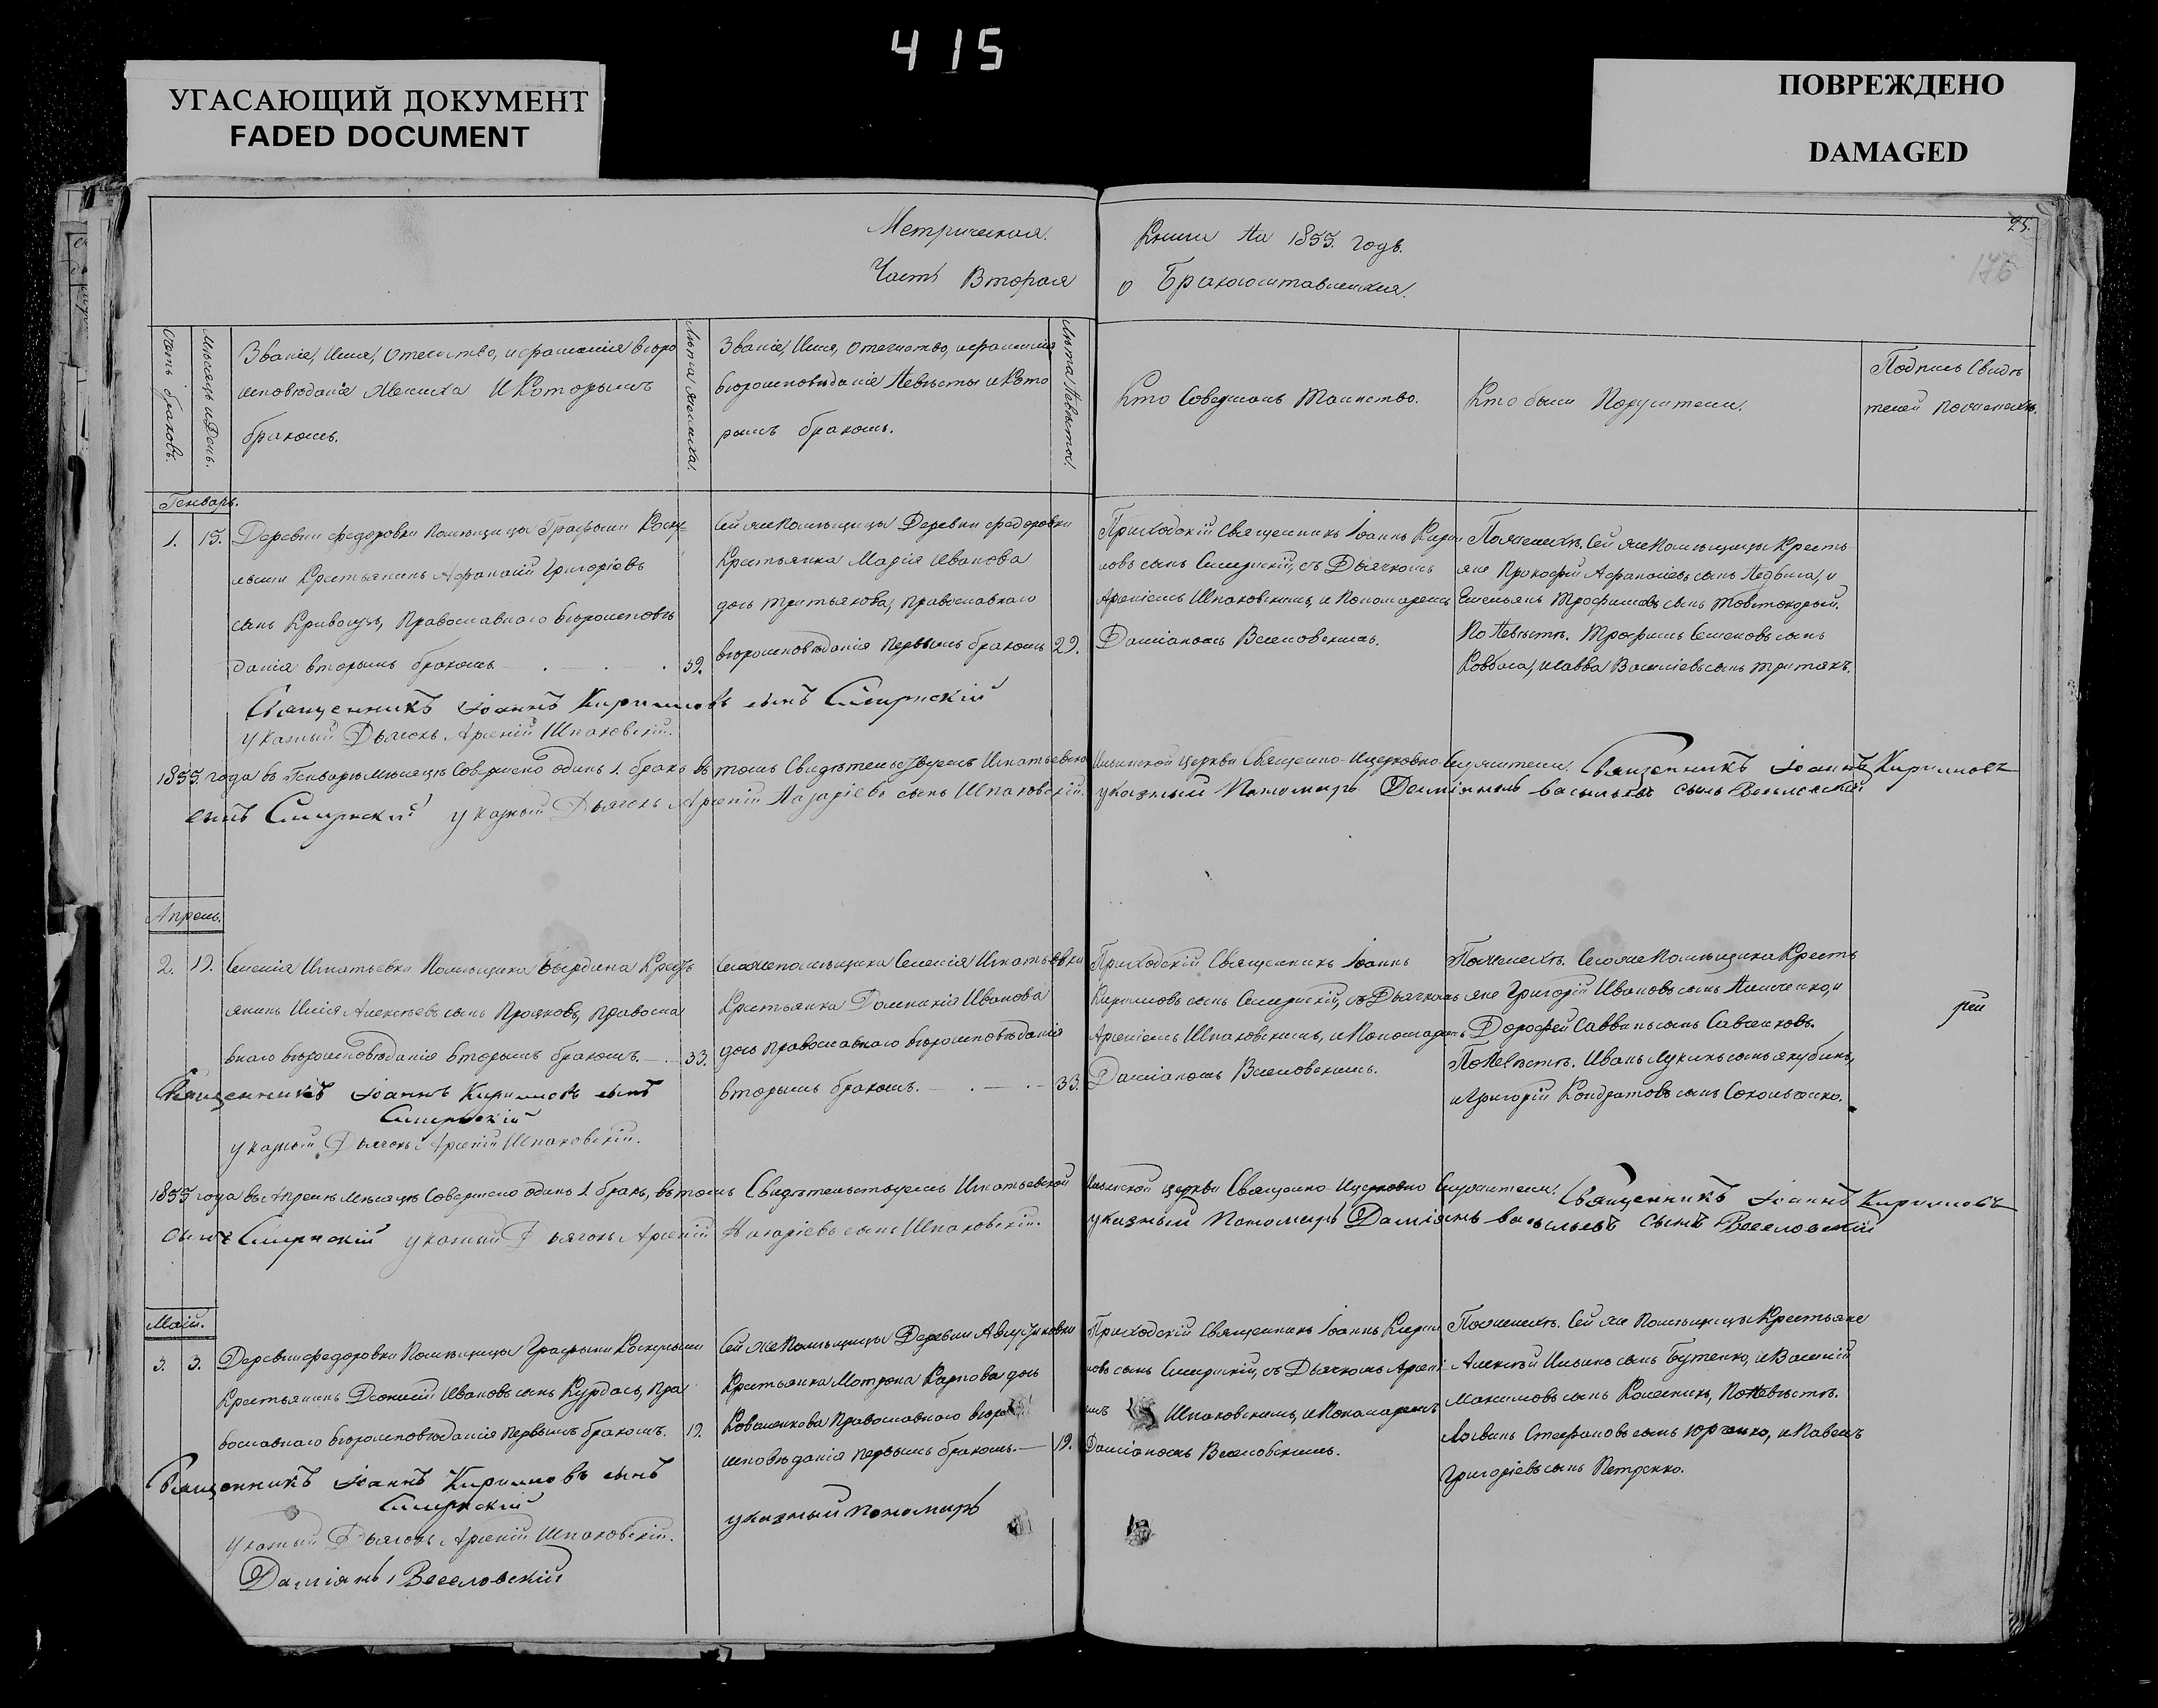 415
УГАСАЮЩИЙ ДОКУМЕНТ
FADED DOCUMENT
ПОВРЕЖДЕНО
DAMAGED
75.
176
Метрическая. Книга На 1855. годъ.
Часть Вторая о Бракосочетавшихся.
Счетъ браковъ.
Мѣсяцъ и День.
Званіе, Имя, Отечество, и фамилія вѣро
исповѣданіе Жениха И Которымъ
бракомъ.
Лѣта жениха.
Званіе, Имя, Отечество, и фамилія
вѣроисповѣданіе Невѣсты и Кото
рымъ бракомъ.
Лѣта Невѣсты.
Кто Совершалъ Таинство.
Кто были Поручители.
Подпись Свидѣ
телей по желанію.
Генварь.
1. 15.
Деревни федоровки помѣщицы Графини
Крестьянинъ Афанасій Григоріевъ
сынъ Православнаго вѣроисповѣ
данія вторымъ бракомъ 39.
Сей же помѣщицы Деревни федоровки
Крестьянка Марія Иванова
дочь Третьякова, Православнаго
вѣроисповѣданія Первымъ бракомъ 29.
Приходскій Священникъ Іоаннъ Кирил
ловъ сынъ съ Дьячкомъ
Арсеніемъ Шпаковскимъ, и Пономаремъ
Даміаномъ Веселовскимъ.
По женихѣ. Сей же Помѣщицы Кресть
яне Прокофій Афанасіевъ сынъ и
Емельянъ Трофимовъ сынъ
По Невѣстѣ. Трофимъ Семеновъ сынъ
Ковбаса, и Савва Василіевъ сынъ Третякъ.
Священникъ Іоаннъ Кирилловъ сынъ
указный Дьячокъ Арсеній Шпаковскій.
1855. года въ Генварѣ мѣсяцѣ Совершено одинъ 1. бракъ въ томъ Свидѣтельствуемъ Игнатьевской Ильинской церкви Священно-Ицерковно Служители. Священникъ Іоаннъ Кирилловъ
сынъ указный Дьячокъ Арсеній Назаріевъ сынъ Шпаковскій. указный Пономарь Даміянъ васильевъ сынъ Веселовскій
Апрель.
2. 19.
Селенія Игнатьевки Помѣщика Крестъ
янинъ Илія Алексѣевъ сынъ Правосла
внаго вѣроисповѣданія вторымъ бракомъ. 33.
Сего же помѣщика Селенія Игнатьевки
Крестьянка Домникія Иванова
дочь Православнаго вѣроисповѣданія
вторымъ бракомъ. 33.
Приходскій Священникъ Іоаннъ
Кирилловъ сынъ съ Дьячкомъ
Арсеніемъ Шпаковскимъ, и Пономаремъ
Даміаномъ Веселовскимъ.
По женихѣ. Сего же Помѣщика Кресть
яне Григорій Ивановъ сынъ и
Дорофей Саввинъ сынъ Савченковъ.
По Невѣстѣ. Иванъ Лукинъ сынъ
и Григорій Кондратовъ сынъ
Священникъ Іоаннъ Кирилловъ сынъ
указный Дьячокъ Арсеній Шпаковскій.
1855 года въ Апрелѣ мѣсяцѣ Совершено одинъ 1. бракъ, въ томъ Свидѣтельствуемъ Игнатьевской Ильинской церкви Священно-Ицерковно Служители. Священникъ Іоаннъ Кирилловъ
сынъ указный Дьячокъ Арсеній Назаріевъ сынъ Шпаковскій. указный Пономарь Даміянъ васильевъ сынъ Веселовскій
Маій.
3. 3.
Деревни федоровки Помѣщицы Графини
Крестьянинъ Діонисій Ивановъ сынъ Курдась, Пра
вославнаго вѣроисповѣданія Первымъ бракомъ. 19.
Сей же Помѣщицы Деревни
Крестьянка Мотрона Карпова дочь
Православнаго вѣро
исповѣданія первымъ бракомъ. 19.
Приходскій Священникъ Іоаннъ Кирил
ловъ сынъ съ Дьячкомъ Арсені
емъ Шпаковскимъ, и Пономаремъ
Даміаномъ Веселовскимъ.
По женихѣ. Сей же Помѣщицы Крестьяне
Алексѣй Ильинъ сынъ Бутенко, и Василій
Максимовъ сынъ Колесникъ, По Невѣстѣ.
Логвинъ Стефановъ сынъ Юрченко, и Павелъ
Григоріевъ сынъ Петренко.
Священникъ Іоаннъ Кирилловъ сынъ
указный Дьячокъ Арсеній Шпаковскій.
указный пономарь
Даміянъ Веселовскій